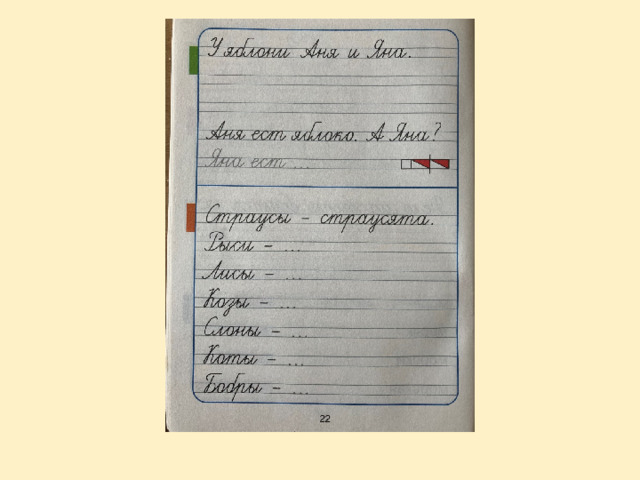 У яблони Аня и Яна.
Аня ест яблоко. А Яна?
Яна ест ...
Страусы – страусята.
Рыси – ...
Лисы – ...
Козы – ...
Слоны – ...
Коты – ...
Бобры – ...
22